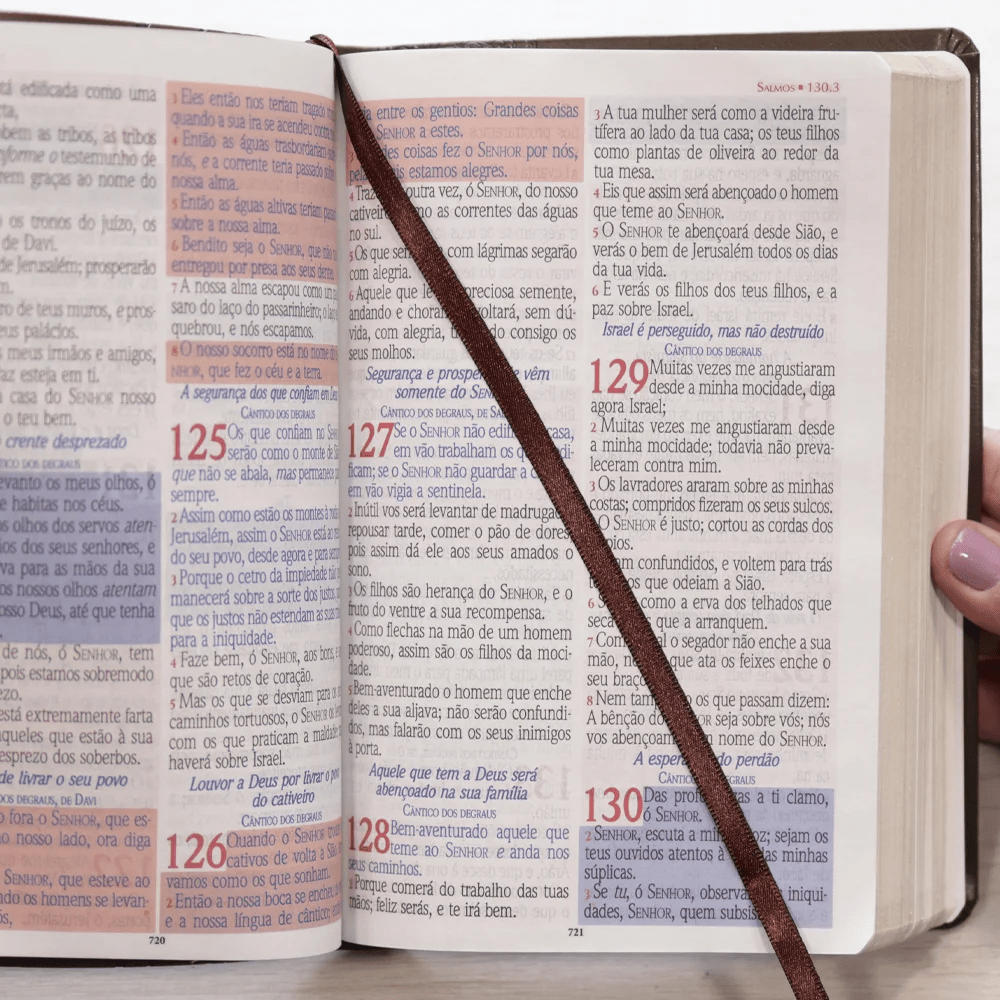 tá edificada como uma
bem as tribos, as tribos
nforme o testemunho de
rem graças ao nome do
o os tronos do juízo, os
de Davi.
de Jerusalém; prosperarão
ro de teus muros, e pros-
eus palácios.
s meus irmãos e amigos,
az esteja em ti.
a casa do SENHOR nosso
o teu bem.
o crente desprezado
TICO DOS DEGRAUS
evanto os meus olhos, ó
e habitas nos céus.
s olhos dos servos aten-
ãos dos seus senhores, e
va para as mãos da sua
os nossos olhos atentam
osso Deus, até que tenha
de nós, ó SENHOR, tem
pois estamos sobremodo
ezo.
está extremamente farta
aqueles que estão à sua
esprezo dos soberbos.
de livrar o seu povo
OS DEGRAUS, DE DAVI
o fora o SENHOR, que es-
o nosso lado, ora diga
SENHOR, que esteve ao
ndo os homens se levan-
ós,
3 Eles então nos teriam tragado
quando a sua ira se acendeu contra
4 Então as águas trasbordariam
nós, e a corrente teria passado sobre
nossa alma.
5 Então as águas altivas teriam passado
sobre a nossa alma.
6 Bendito seja o SENHOR, que não
entregou por presa aos seus dentes.
7 A nossa alma escapou como um
saro do laço do passarinheiro; o laço
quebrou, e nós escapamos.
8 O nosso socorro está no nome do
NHOR, que fez o céu e a terra.
A segurança dos que confiam em Deus
CÂNTICO DOS DEGRAUS
125 Os que confiam no
serão como o monte de
que não se abala, mas permanece
sempre.
2 Assim como estão os montes à
Jerusalém, assim o SENHOR está ao
do seu povo, desde agora e para sempre.
3 Porque o cetro da impiedade não
manecerá sobre a sorte dos justos,
que os justos não estendam as suas
para a iniquidade.
4 Faze bem, ó SENHOR, aos bons, e
que são retos de coração.
5 Mas os que se desviam para os
caminhos tortuosos, o SENHOR os
com os que praticam a maldade;
haverá sobre Israel.
Louvor a Deus por livrar o povo
do cativeiro
CÂNTICO DOS DEGRAUS
126 Quando o SENHOR trouxe
cativos de volta a Sião
vamos como os que sonham.
2 Então a nossa boca se encheu
e a nossa língua de cântico;
720
SALMOS ▪ 130.3
a entre os gentios: Grandes coisas
SENHOR a estes.
3 des coisas fez o SENHOR por nós,
pel is estamos alegres.
4 Traz outra vez, ó SENHOR, do nosso
cativeir mo as correntes das águas
no sul.
5 Os que sem com lágrimas segarão
com alegria.
6 Aquele que le preciosa semente,
andando e choran voltará, sem dú-
vida, com alegria, t do consigo os
seus molhos.
Segurança e prosper e vêm
somente do SEN
CÂNTICO DOS DEGRAUS, DE SA
127 Se o SENHOR não edifi casa,
em vão trabalham os q di-
ficam; se o SENHOR não guardar a c
em vão vigia a sentinela.
2 Inútil vos será levantar de madruga
repousar tarde, comer o pão de dores
pois assim dá ele aos seus amados o
sono.
3 Os filhos são herança do SENHOR, e o
fruto do ventre a sua recompensa.
4 Como flechas na mão de um homem
poderoso, assim são os filhos da moci-
dade.
5 Bem-aventurado o homem que enche
deles a sua aljava; não serão confundi-
dos, mas falarão com os seus inimigos
à porta.
Aquele que tem a Deus será
abençoado na sua família
CÂNTICO DOS DEGRAUS
128 Bem-aventurado aquele que
teme ao SENHOR e anda nos
seus caminhos.
2 Porque comerá do trabalho das tuas
mãos; feliz serás, e te irá bem.
3 A tua mulher será como a videira fru-
tífera ao lado da tua casa; os teus filhos
como plantas de oliveira ao redor da
tua mesa.
4 Eis que assim será abençoado o homem
que teme ao SENHOR.
5 O SENHOR te abençoará desde Sião, e
verás o bem de Jerusalém todos os dias
da tua vida.
6 E verás os filhos dos teus filhos, e a
paz sobre Israel.
Israel é perseguido, mas não destruído
CÂNTICO DOS DEGRAUS
129 Muitas vezes me angustiaram
desde a minha mocidade, diga
agora Israel;
2 Muitas vezes me angustiaram desde
a minha mocidade; todavia não preva-
leceram contra mim.
3 Os lavradores araram sobre as minhas
costas; compridos fizeram os seus sulcos.
O SENHOR é justo; cortou as cordas dos
pios.
am confundidos, e voltem para trás
t os que odeiam a Sião.
6 S como a erva dos telhados que
seca que a arranquem.
7 Com al o segador não enche a sua
mão, ne que ata os feixes enche o
seu braço
8 Nem tam os que passam dizem:
A bênção do OR seja sobre vós; nós
vos abençoam u nome do SENHOR.
A espera do perdão
CÂNTIC GRAUS
130 Das profu as a ti clamo,
ó SENHOR.
2 SENHOR, escuta a mi oz; sejam os
teus ouvidos atentos à das minhas
súplicas.
3 Se tu, ó SENHOR, observa iniqui-
dades, SENHOR, quem subsis
721